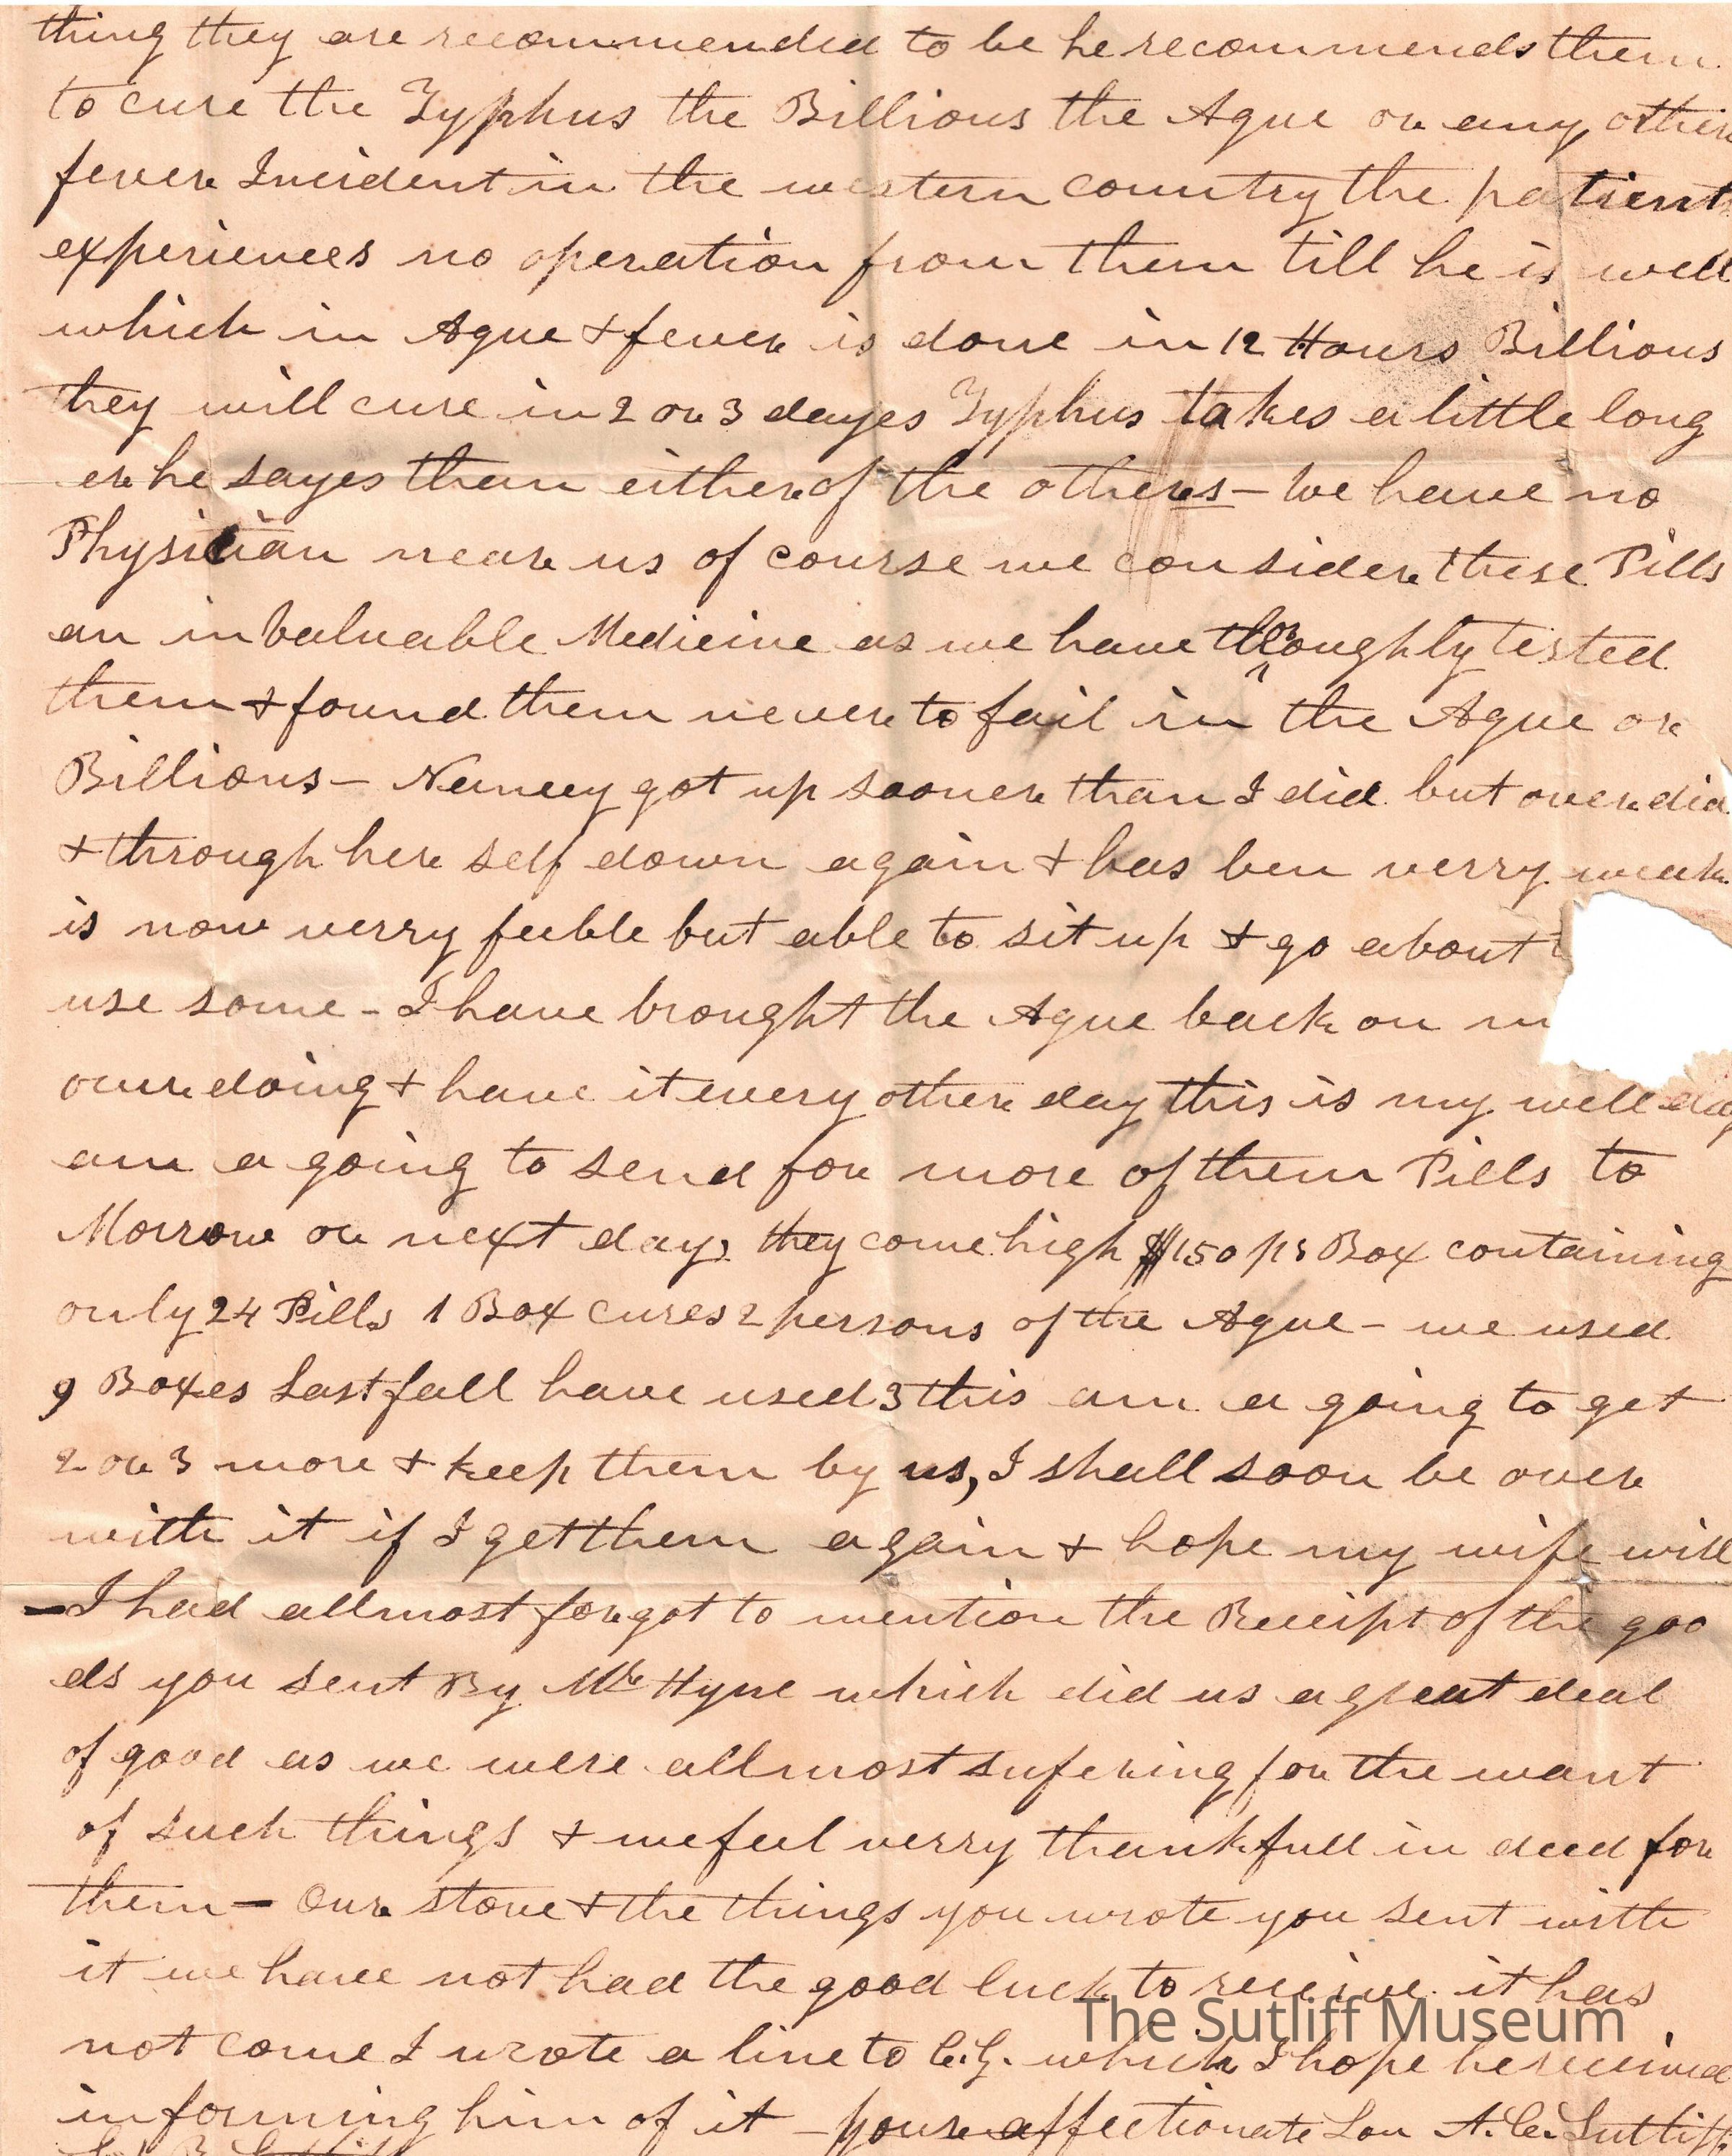 thing they are recommended to be he recommends them
to cure the Typhus the Billious the Ague or any other
fever Incident in the western country the patient
experiences no operation from them till he is well
which in Ague & fever is done in 12 Hours Billious
they will cure in 2 or 3 dayes Typhus takes a little long
er he sayes than either of the others - We have no
Physician near us of course we consider these Pills
an invaluable Medicine as we have thoroughly tested
them & found them never to fail in the Ague or
Billious - Nancy got up sooner than I did but over did
& through her self down again & has ben verry weak
is now verry feeble but able to sit up & go about
use some - I have brought the Ague back on
over doing & have it every other day this is my well day
am a going to send for more of them Pills to
Morrow or next day, they come high $150 pr Box containing
only 24 Pills 1 Box cures 2 persons of the Ague - we used
9 Boxes Last fall have used 3 this am a going to get
2 or 3 more & keep them by us, I shall soon be over
with it if I get them again & hope my wife will
- I had allmost forgot to mention the Receipt of the goo
ds you sent By Mr Hyne which did us a great deal
of good as we were allmost sufering for the want
of such things & we feel verry thankfull in deed for
them - Our stove & the things you wrote you sent with
it we have not had the good luck to receive it has
The Sutliff Museum
not come I wrote a line to C.G. which I hope he received
informing him of it - your affectionate Son A. C. Sutliff